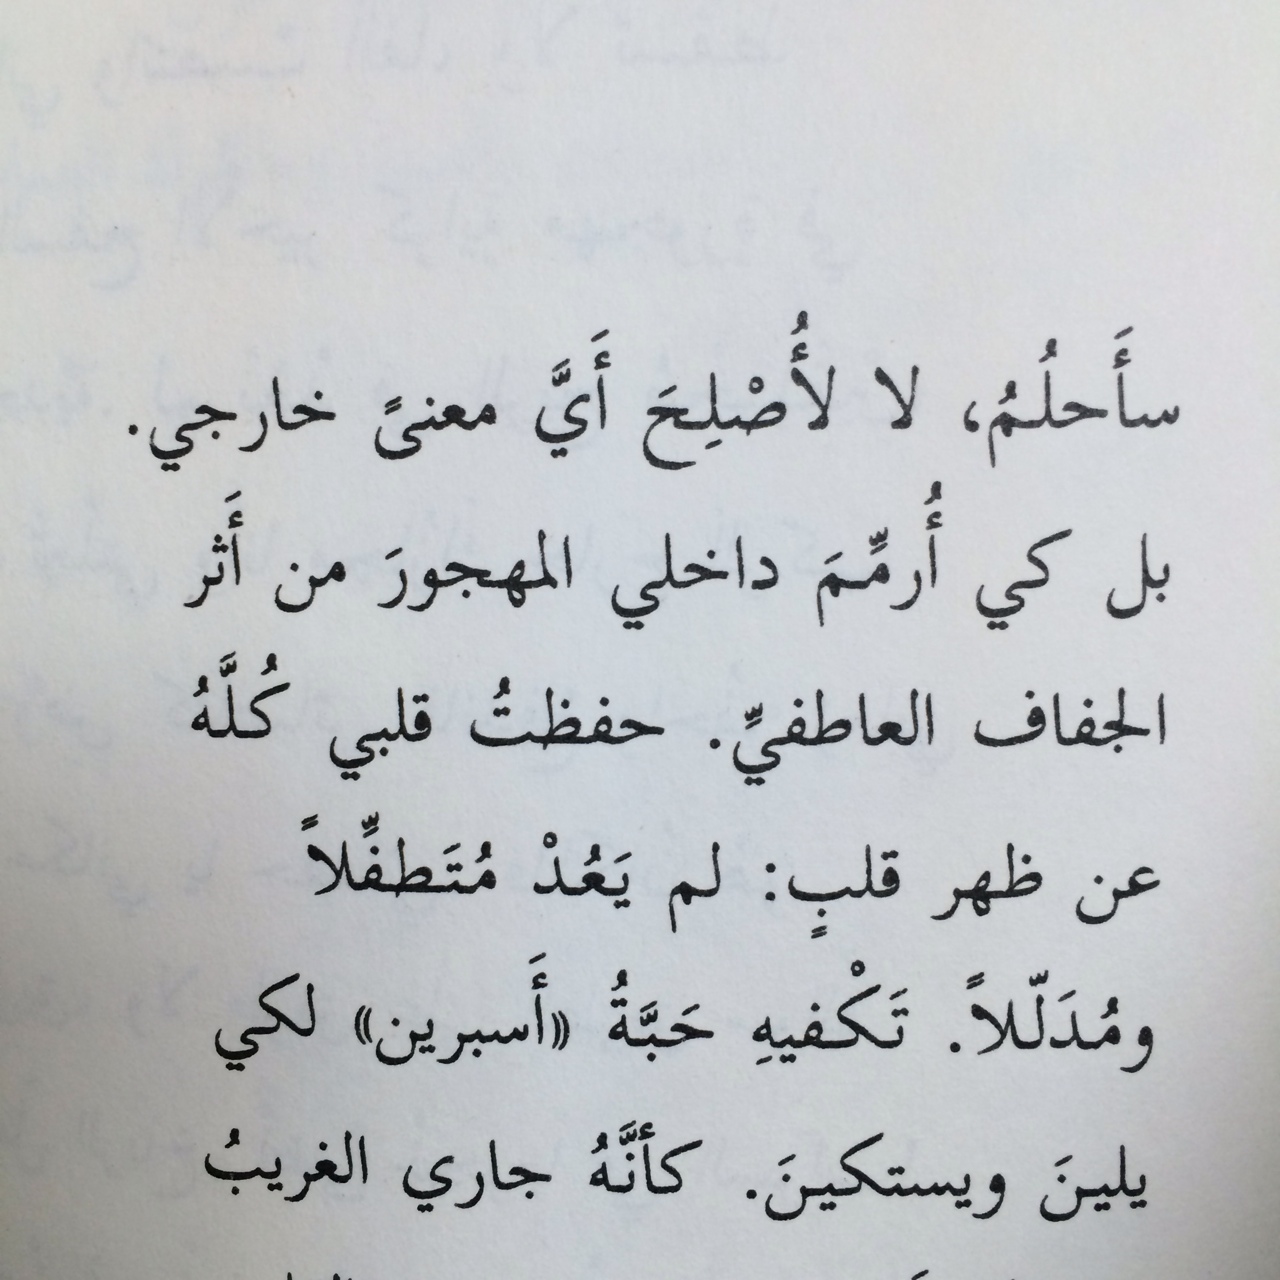 سأَحلُمُ، لا لأُصْلِحَ أَيَّ معنىً خارجي.
بل كي أُرمِّمَ داخلي المهجورَ من أَثر
الجفاف العاطفيِّ. حفظتُ قلبي كُلَّهُ
عن ظهر قلبٍ: لم يَعُدْ مُتَطفِّلاً
ومُدَلّلاً. تَكْفيهِ حَبَّةُ «أَسبرين» لكي
يلينَ ويستكينَ. كأنَّهُ جاري الغريبُ